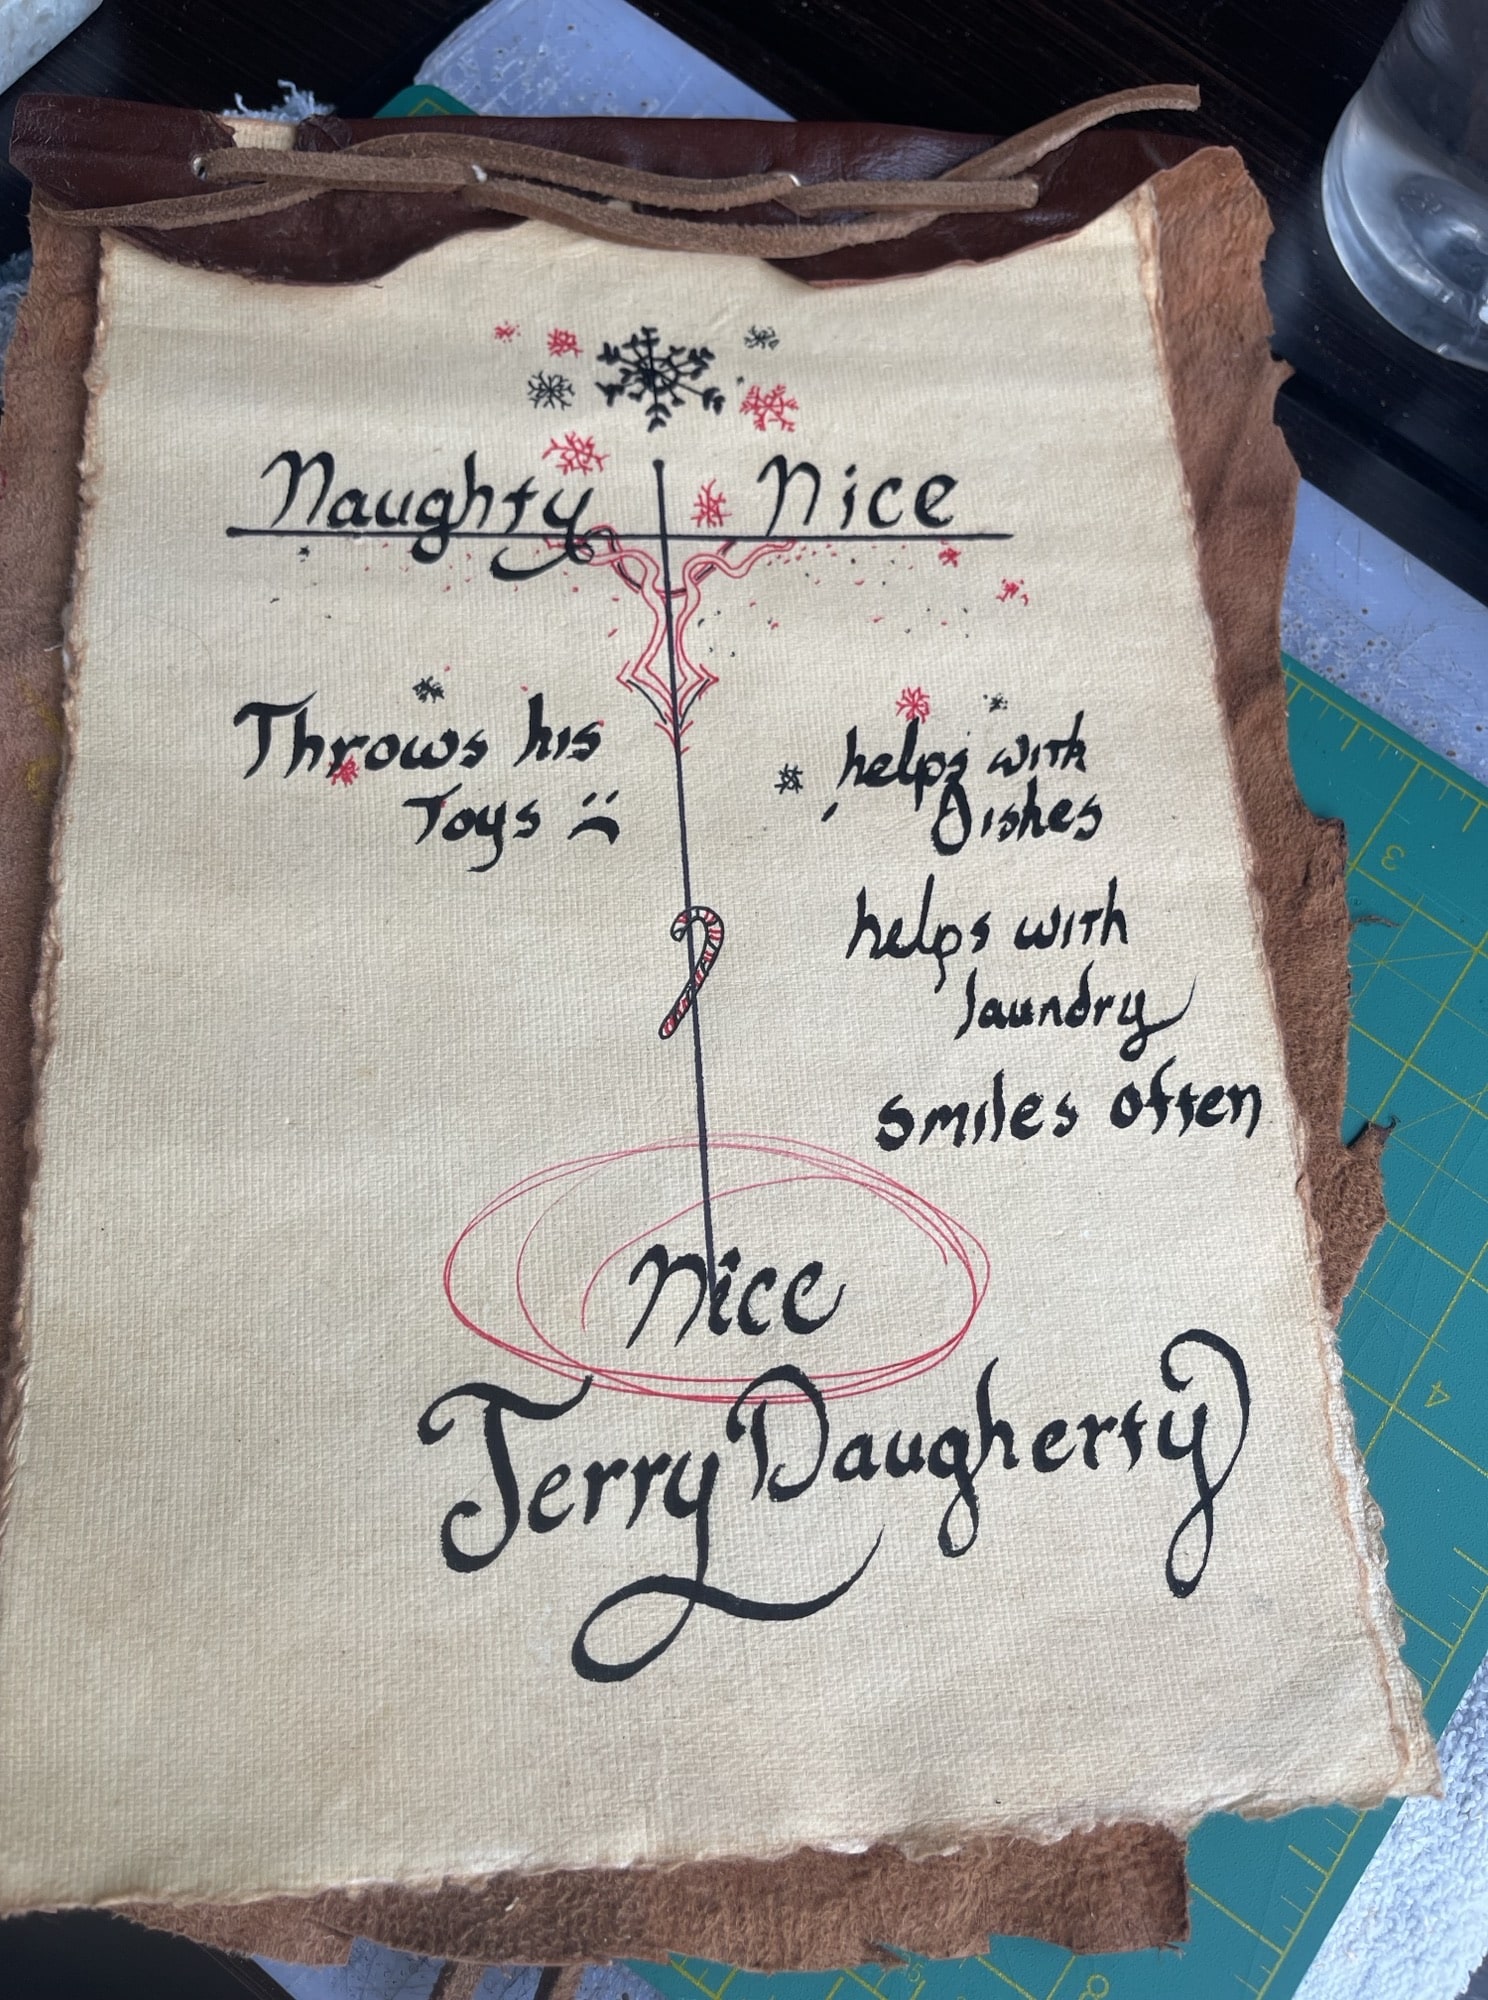 Naughty Nice
Throws his
Toys :(
helps with
Dishes
helps with
laundry
smiles often
Nice
Jerry Daugherty
3
4